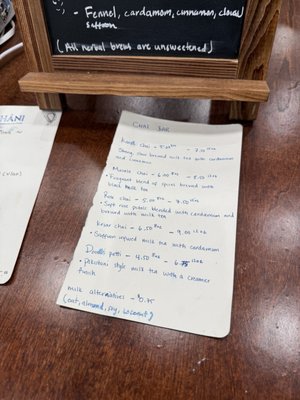 - Fennel, cardamom, cinnamon, cloves
saffron
(All herbal brews are unsweetened)
HÁNI
CHAI BAR
Karak chai - 5.00 - 7.00
Strong, slow brewed milk tea with cardamom
and cinnamon
Masala chai - 6.00 - 8.00
• Fragrant blend of spices brewed with
black milk tea
Rose chai - 5.50 - 7.00
• Soft rose petals blended with cardamom and
brewed with milk tea
Kesar chai - 6.50 - 9.00
• Saffron infused milk tea with cardamom
Doodh patti - 4.50 - 6.75
• Pakistani style milk tea with a creamier
finish
milk alternatives - $0.75
(oat, almond, soy, coconut)